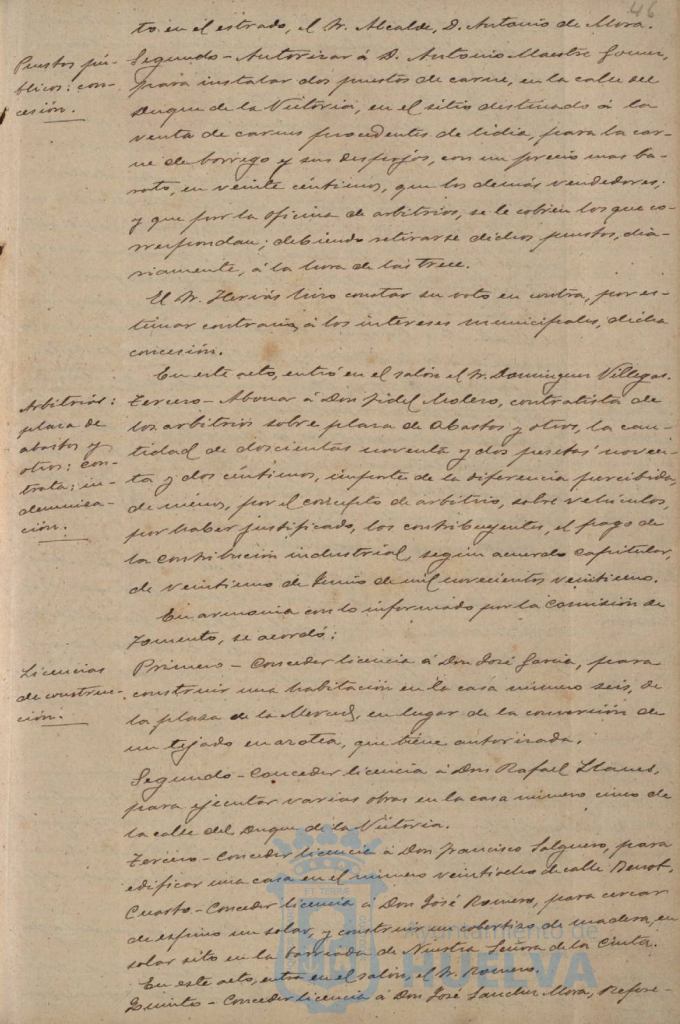 46
to, en el estrado, el Sr. Alcalde, D. Antonio de Mora.
Puestos pú-
blicos: con-
cesión.
Segundo - Autorizar á D. Antonio Maestre Gomez,
para instalar dos puestos de carne, en la calle del
Duque de la Victoria, en el sitio destinado á la
venta de carnes procedentes de lidia, para la car-
ne de borrego y sus despojos, con un precio mas ba-
rato, en veinte céntimos, que los demás vendedores;
y que por la oficina de arbitrios, se le cobren los que co-
rrespondan; debiendo retirarse dichos puestos, dia-
riamente, á la hora de las trece.
El Sr. Hervás hizo constar su voto en contra, por es-
timar contraria, á los intereses municipales, dicha
concesión.
En este acto, entró en el salón el Sr. Dominguez Villegas.
Arbitrios:
plaza de
abastos y
otros: con-
trata: in-
demniza-
ción.
Tercero - Abonar á Don Fidel Molero, contratista de
los arbitrios sobre plaza de Abastos y otros, la can-
tidad de doscientas noventa y dos pesetas noven-
ta y dos céntimos, importe de la diferencia percibida,
de menos, por el concepto de arbitrio, sobre vehículos,
por haber justificado, los contribuyentes, el pago de
la contribución industrial, según acuerdo capitular,
de veintiuno de Junio de mil novecientos veintiuno.
En armonia con lo informado por la Comisión de
Fomento, se acordó:
Licencias
de construc-
ción.
Primero - Conceder licencia á Don José Garcia, para
construir una habitación en la casa número seis, de
la plaza de la Merced, en lugar de la conversión de
un tejado en azotea, que tiene autorizada.
Segundo - Conceder licencia á Don Rafael Llanes,
para ejecutar varias obras en la casa número cinco de
la calle del Duque de la Victoria.
Tercero - Conceder licencia á Don Francisco Salguero, para
edificar una casa en el número veintiocho de calle Benot.
Cuarto - Conceder licencia á Don José Romero, para cercar
de espino un solar, y construir un cobertizo de madera, en
solar sito en la barriada de Nuestra Señora de la Cinta.
En este acto, entra en el salón, el Sr. Romero.
Quinto - Conceder licencia á Don José Sanchez Mora,
Ayuntamiento de
HUELVA